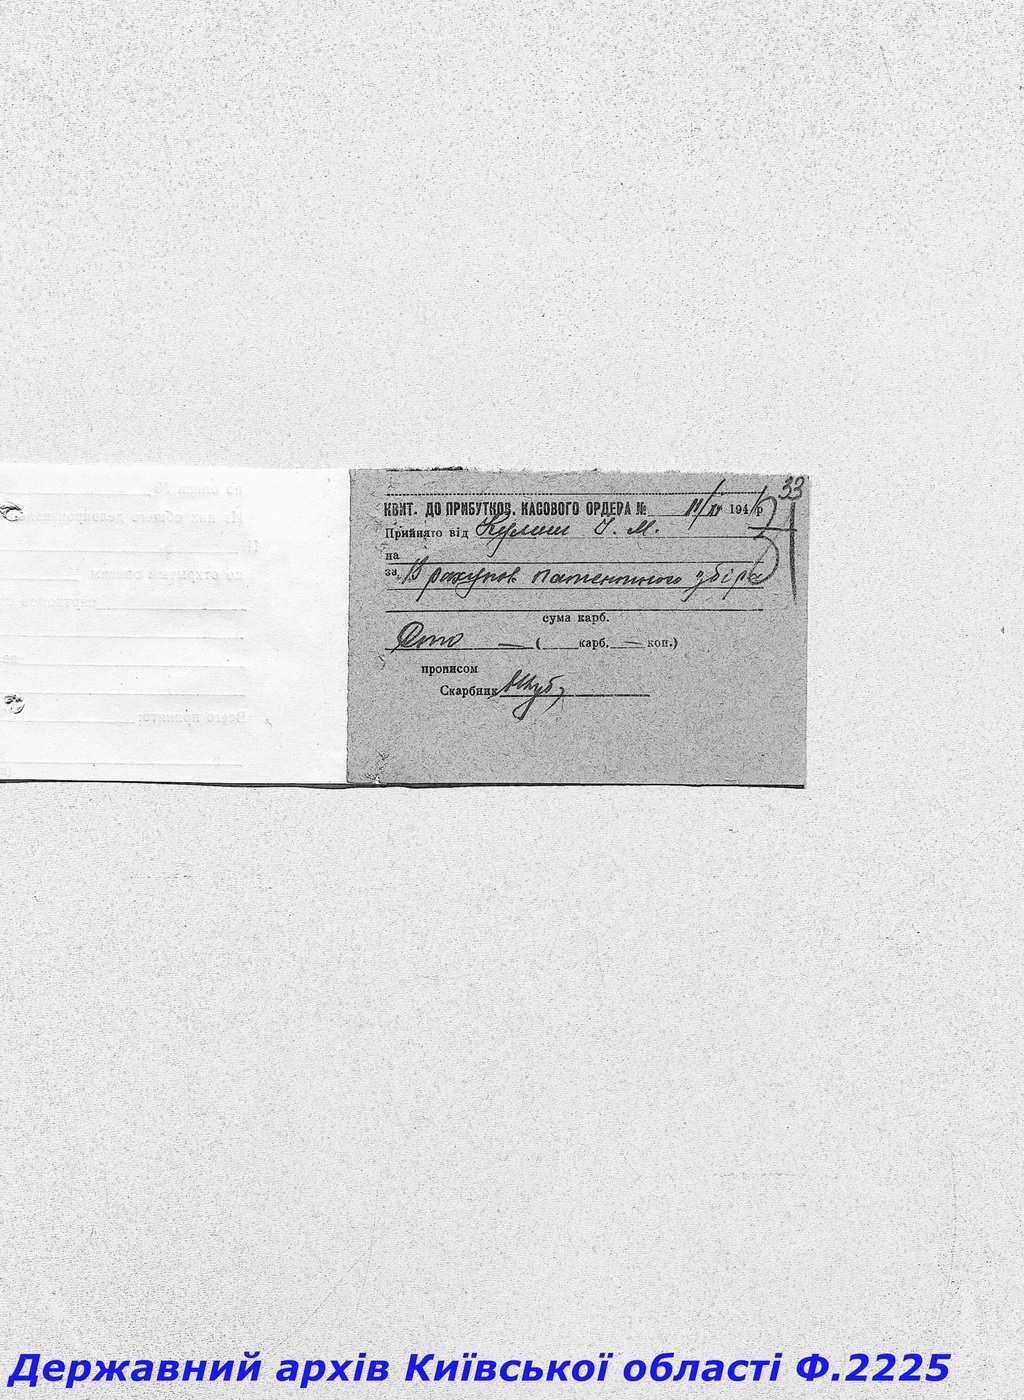 33
31
КВИТ. ДО ПРИБУТКОВ. КАСОВОГО ОРДЕРА № 11/II 194 р
Прийнято від Кулиш І. М.
на
за В рахунок патентного збіра
сума карб.
Сто — ( карб. — коп.)
прописом
Скарбник
Державний архів Київської області Ф.2225